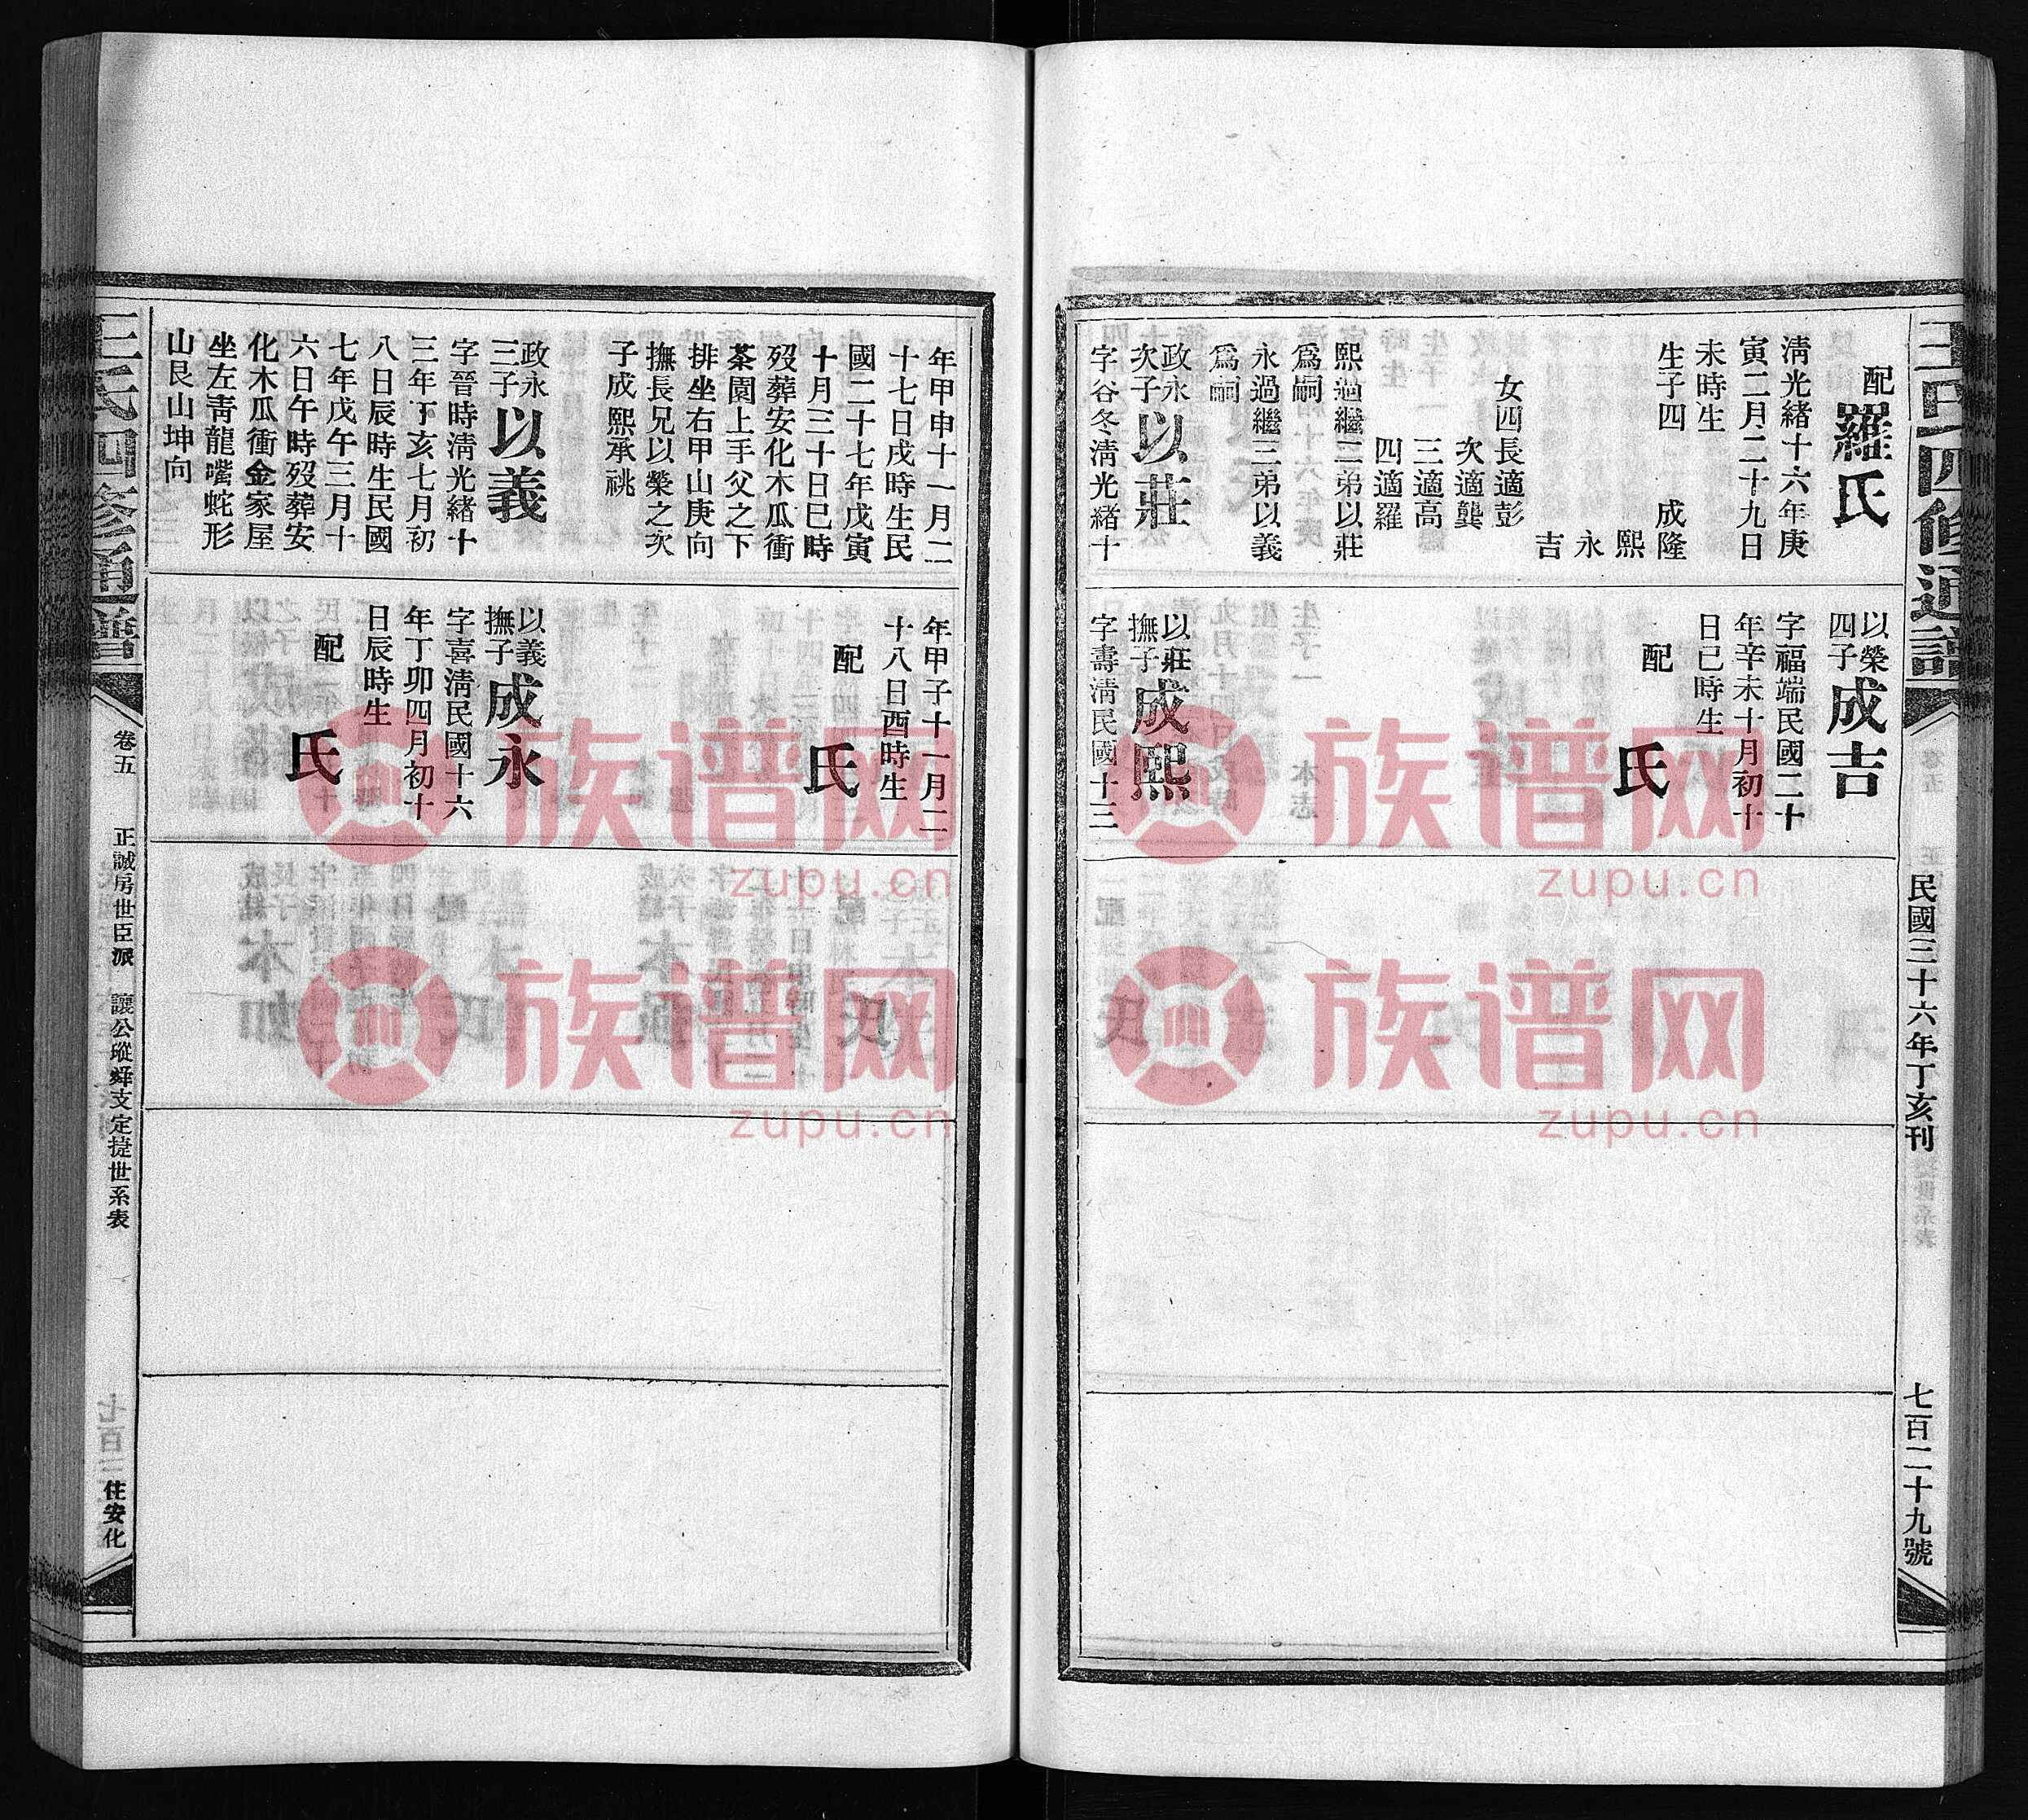 王氏四修通譜
民國三十六年丁亥刊
七百二十九號
配羅氏
清光緒十六年庚
寅二月二十九日
未時生
生子四 成隆
熙
永
吉
女四長適彭
次適龔
三適高
四適羅
熙過繼二弟以莊
爲嗣
永過繼三弟以義
爲嗣
政永
次子以莊
字谷冬清光緒十
以榮
四子成吉
字福端民國二十
年辛未十月初十
日己時生
配 氏
以莊
撫子成熙
字壽清民國十三
年甲申十一月二
十七日戌時生民
國二十七年戊寅
十月三十日巳時
歿葬安化木瓜衝
茶園上手父之下
排坐右甲山庚向
撫長兄以榮之次
子成熙承祧
政永
三子以義
字晉時清光緒十
三年丁亥七月初
八日辰時生民國
七年戊午三月十
六日午時歿葬安
化木瓜衝金家屋
坐左青龍嘴蛇形
山艮山坤向
年甲子十一月二
十八日酉時生
配 氏
以義
撫子成永
字喜清民國十六
年丁卯四月初十
日辰時生
配 氏
王氏四修通譜
卷五 正誠房世臣派 讓公瑽舜支定捷世系表
住安化
族谱网
zupu.cn
族谱网
zupu.cn
族谱网
zupu.cn
族谱网
zupu.cn